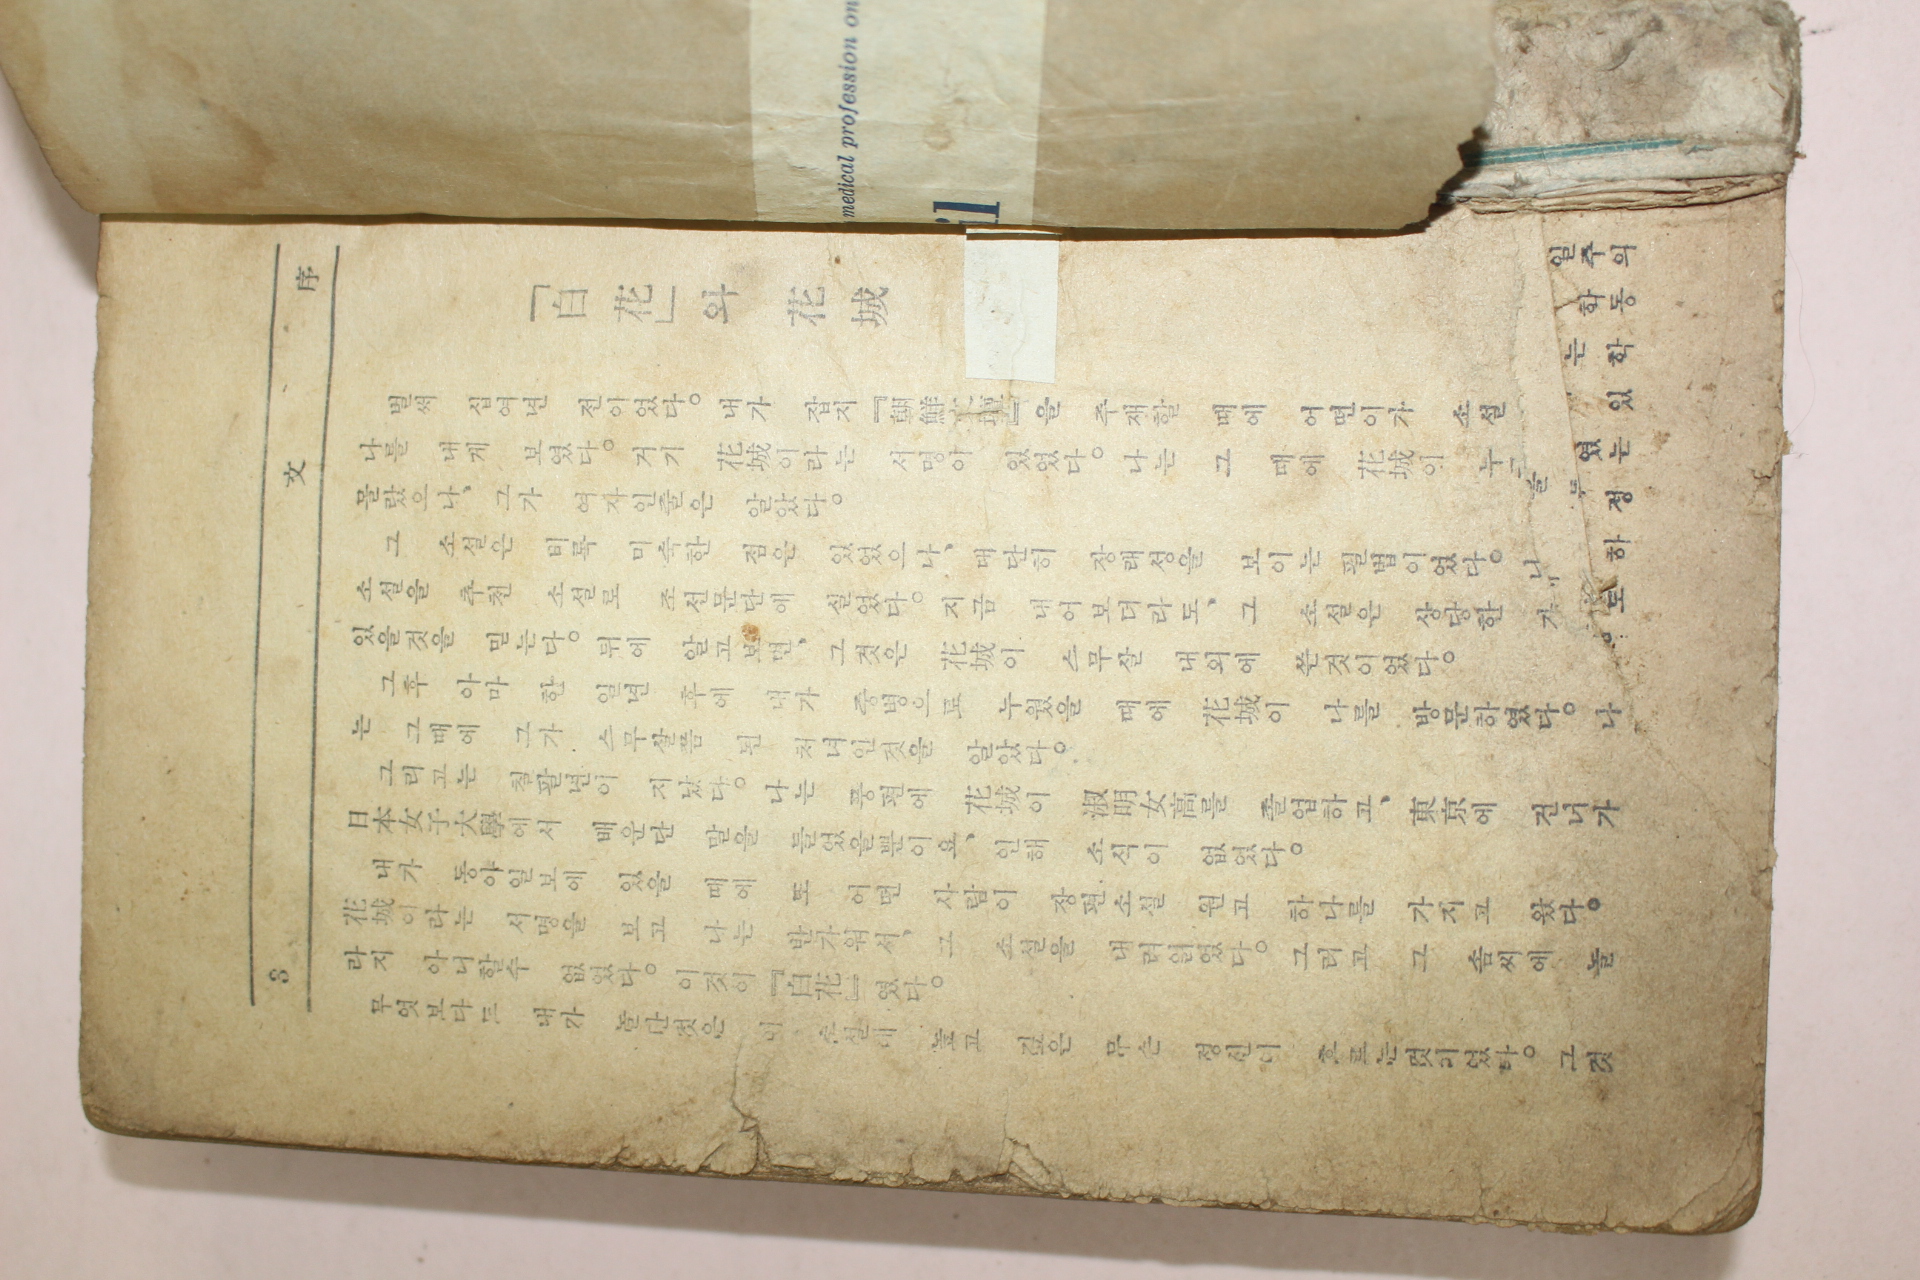 medical profession on
il
序
文
3
「白花」와 花城
벌써 십여년 전이었다。 내가 잡지 『朝鮮文壇』을 주재할 때에 어떤이가 소설
나를 내게 보였다。 거기 花城이라는 서명이 있었다。 나는 그 때에 花城이 누
몰랐으나、 그가 여자인줄은 알았다。
그 소설은 비록 미숙한 점은 있었으나、 대단히 장래성을 보이는 필법이었다。
소설을 추천 소설로 조선문단에 실었다。 지금 내어보더라도、 그 소설은 상당한
있을것을 믿는다。 뒤에 알고보면、 그것은 花城이 스무살 내외에 쓴것이었다。
그후 아마 한 일년 후에 내가 중병으로 누웠을 때에 花城이 나를 방문하였다。 나
는 그때에 그가 스무살쯤 된 처녀인것을 알았다。
그리고는 칠팔년이 지났다。 나는 풍편에 花城이 淑明女高를 졸업하고、 東京에 건너가
日本女子大學에서 배운단 말을 들었을뿐이요、 인해 소식이 없었다。
내가 동아일보에 있을 때에 또 어떤 사람이 장편소설 원고 하나를 가지고 왔다。
花城이라는 서명을 보고 나는 반가워서、 그 소설을 내려읽었다。 그리고 그 솜씨에 놀
라지 아니할수 없었다。 이것이 『白花』였다。
무엇보다도 내가 놀란것은 이 소설에 높고 깊은 무슨 정신이 흐르는것이었다。 그것